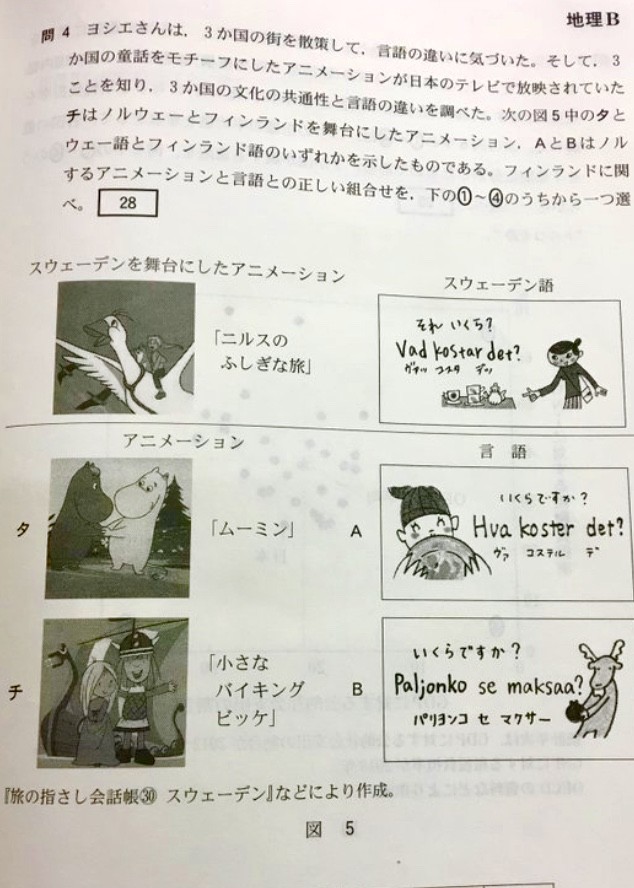 地理B
問4 ヨシエさんは，3か国の街を散策して，言語の違いに気づいた。そして，3
か国の童話をモチーフにしたアニメーションが日本のテレビで放映されていた
ことを知り，3か国の文化の共通性と言語の違いを調べた。次の図5中のタと
チはノルウェーとフィンランドを舞台にしたアニメーション，AとBはノル
ウェー語とフィンランド語のいずれかを示したものである。フィンランドに関
するアニメーションと言語との正しい組合せを，下の①～④のうちから一つ選
べ。 28
スウェーデンを舞台にしたアニメーション
スウェーデン語
「ニルスの
ふしぎな旅」
それ いくら?
Vad kostar det?
ヴァッ コスタ デッ
アニメーション
言語
タ
「ムーミン」
A
いくらですか?
Hva koster det?
ヴァ コステル デ
チ
「小さな
バイキング
ビッケ」
B
いくらですか?
Paljonko se maksaa?
パリヨンコ セ マクサー
『旅の指さし会話帳㉚ スウェーデン』などにより作成。
図 5